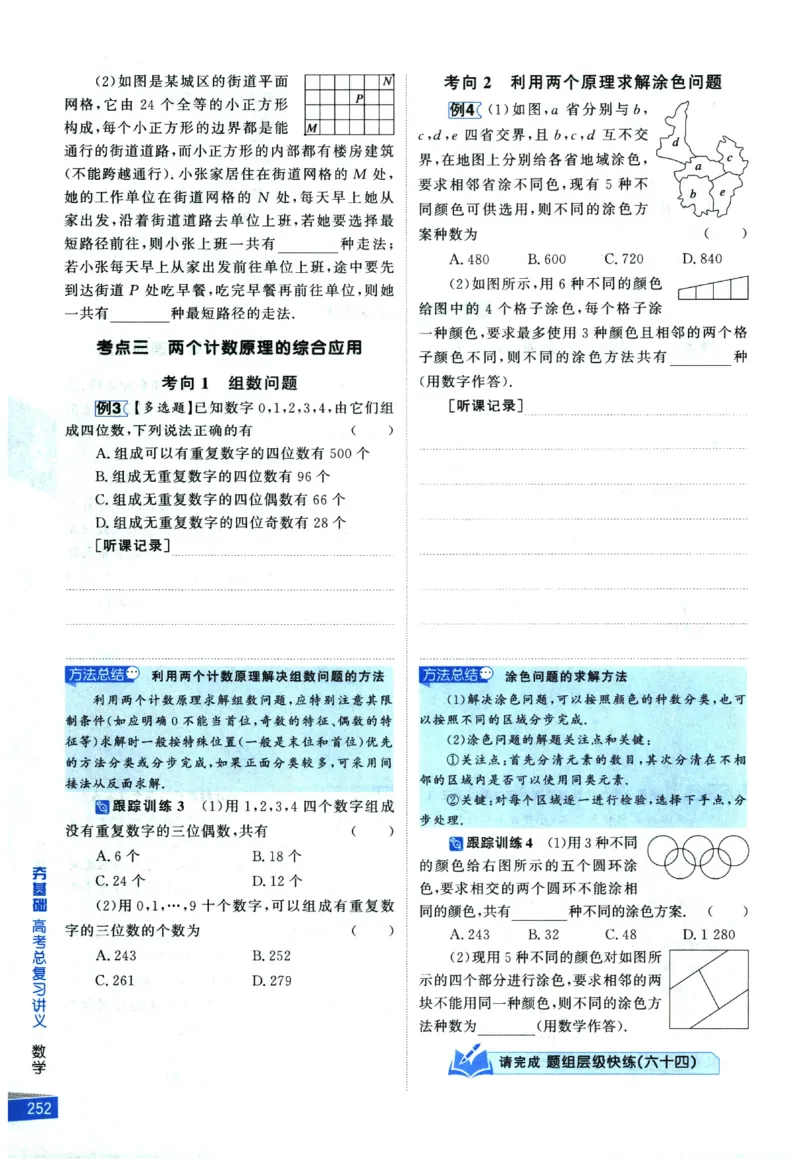 (2)如图是某城区的街道平面
网格,它由 24 个全等的小正方形
构成,每个小正方形的边界都是能
通行的街道道路,而小正方形的内部都有楼房建筑
(不能跨越通行).小张家居住在街道网格的 M 处,
她的工作单位在街道网格的 N 处,每天早上她从
家出发,沿着街道道路去单位上班,若她要选择最
短路径前往,则小张上班一共有________种走法;
若小张每天早上从家出发前往单位上班,途中要先
到达街道 P 处吃早餐,吃完早餐再前往单位,则她
一共有________种最短路径的走法.
N
P
M
考点三 两个计数原理的综合应用
考向 1 组数问题
例3 【多选题】已知数字 0,1,2,3,4,由它们组
成四位数,下列说法正确的有 ( )
A.组成可以有重复数字的四位数有 500 个
B.组成无重复数字的四位数有 96 个
C.组成无重复数字的四位偶数有 66 个
D.组成无重复数字的四位奇数有 28 个
[听课记录]
方法总结 利用两个计数原理解决组数问题的方法
利用两个计数原理求解组数问题,应特别注意其限
制条件(如应明确 0 不能当首位,奇数的特征、偶数的特
征等)求解时一般按特殊位置(一般是末位和首位)优先
的方法分类或分步完成,如果正面分类较多,可采用间
接法从反面求解.
跟踪训练 3 (1)用 1,2,3,4 四个数字组成
没有重复数字的三位偶数,共有 ( )
A.6 个 B.18 个
C.24 个 D.12 个
(2)用 0,1,…,9 十个数字,可以组成有重复数
字的三位数的个数为 ( )
A.243 B.252
C.261 D.279
考向 2 利用两个原理求解涂色问题
例4 (1)如图,a 省分别与 b,
c,d,e 四省交界,且 b,c,d 互不交
界,在地图上分别给各省地域涂色,
要求相邻省涂不同色,现有 5 种不
同颜色可供选用,则不同的涂色方
案种数为 ( )
d
c
a
b
e
A.480 B.600 C.720 D.840
(2)如图所示,用 6 种不同的颜色
给图中的 4 个格子涂色,每个格子涂
一种颜色,要求最多使用 3 种颜色且相邻的两个格
子颜色不同,则不同的涂色方法共有________种
(用数字作答).
[听课记录]
方法总结 涂色问题的求解方法
(1)解决涂色问题,可以按照颜色的种数分类,也可
以按照不同的区域分步完成.
(2)涂色问题的解题关注点和关键:
①关注点:首先分清元素的数目,其次分清在不相
邻的区域内是否可以使用同类元素.
②关键:对每个区域逐一进行检验,选择下手点,分
步处理.
跟踪训练 4 (1)用 3 种不同
的颜色给右图所示的五个圆环涂
色,要求相交的两个圆环不能涂相
同的颜色,共有________种不同的涂色方案. ( )
A.243 B.32 C.48 D.1 280
(2)现用 5 种不同的颜色对如图所
示的四个部分进行涂色,要求相邻的两
块不能用同一种颜色,则不同的涂色方
法种数为________(用数学作答).
请完成 题组层级快练(六十四)
夯基础 高考总复习讲义 数学
252